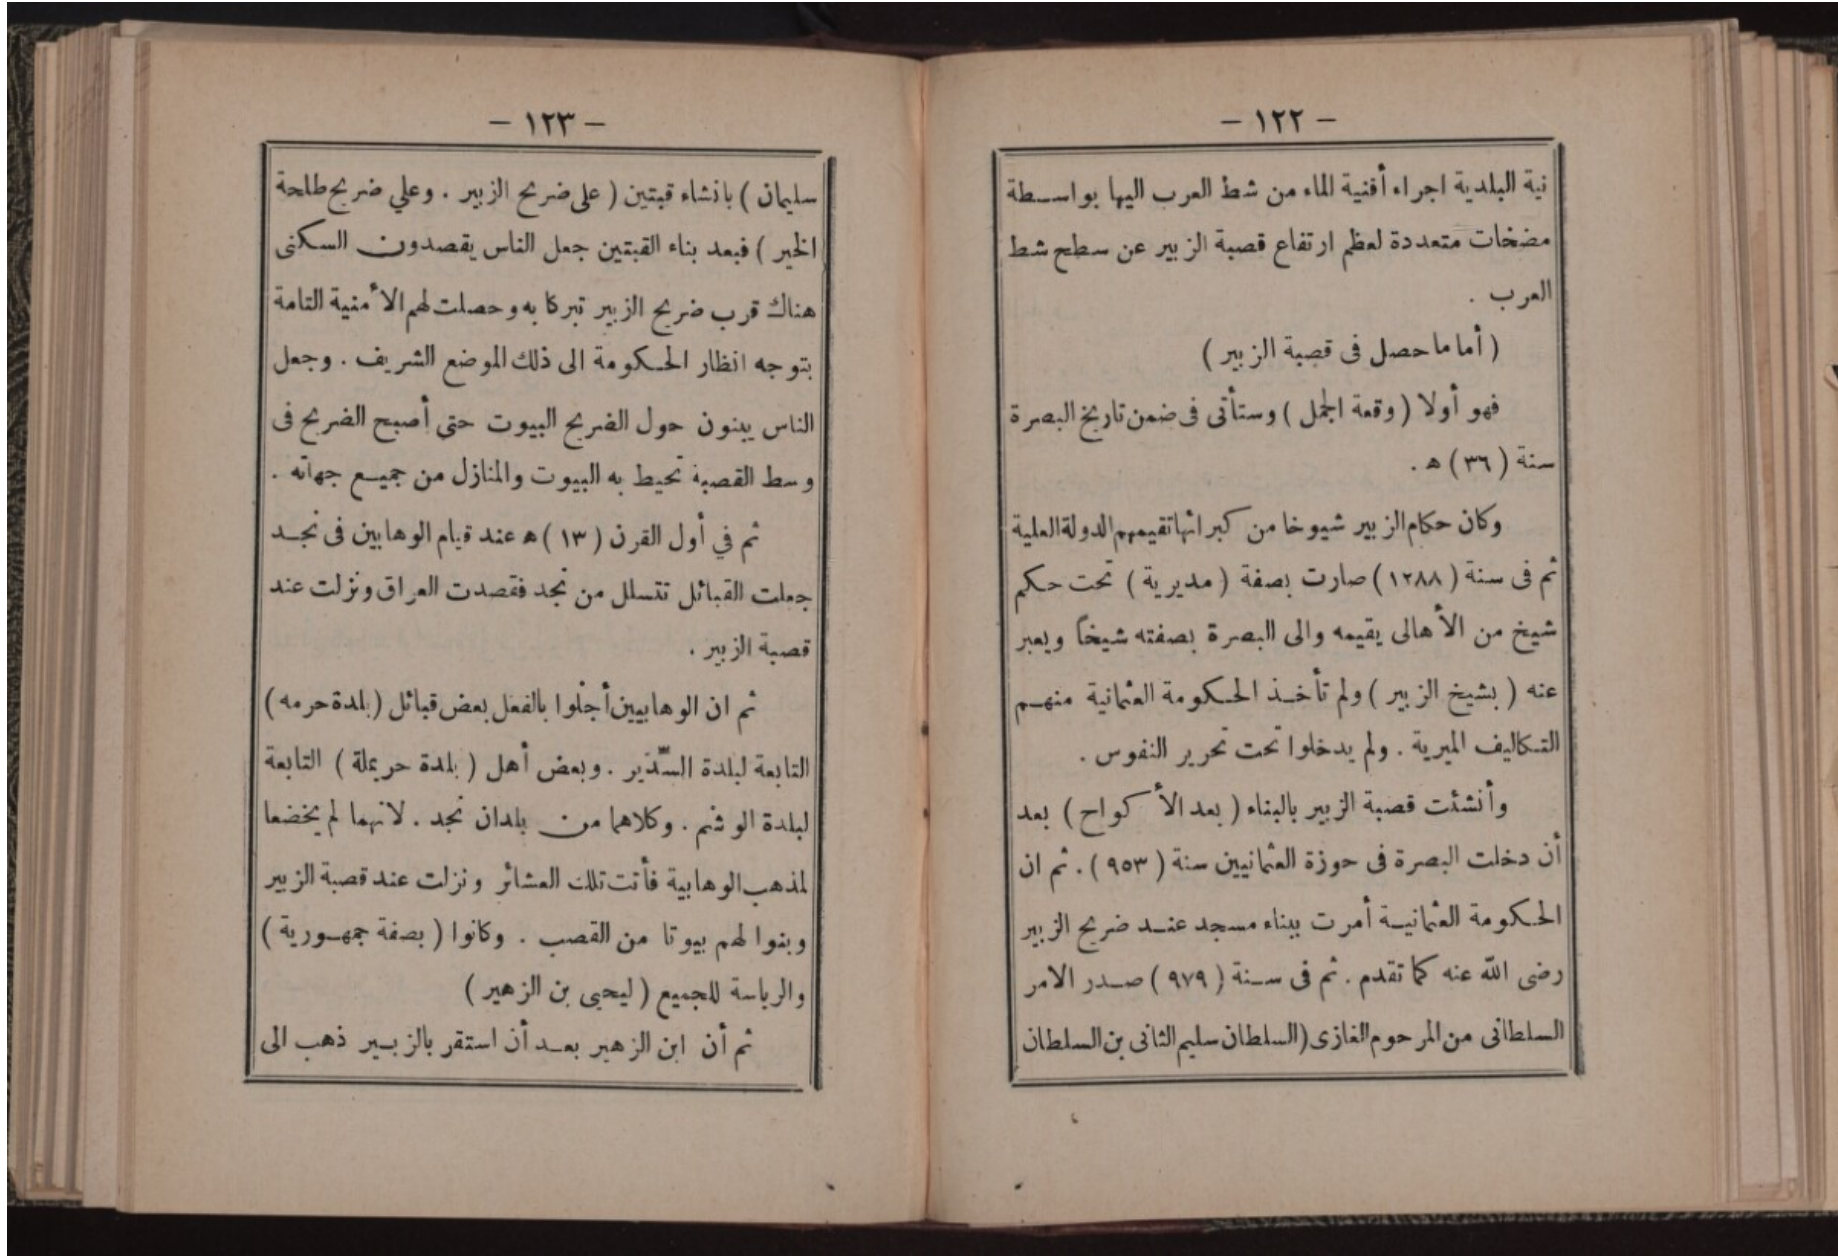 — ١٢٢ —
نية البلدية اجراء أقنية الماء من شط العرب اليها بواسطة
مضخات متعددة لعظم ارتفاع قصبة الزبير عن سطح شط
العرب .
( أما ما حصل فى قصبة الزبير )
فهو أولا ( وقعة الجمل ) وستأتى فى ضمن تاريخ البصرة
سنة ( ٣٦ ) ه .
وكان حكام الزبير شيوخا من كبرائها تقيمهم الدولة العلية
ثم فى سنة ( ١٢٨٨ ) صارت بصفة ( مديرية ) تحت حكم
شيخ من الأهالى يقيمه والى البصرة بصفته شيخاً ويعبر
عنه ( بشيخ الزبير ) ولم تأخذ الحكومة العثمانية منهم
التكاليف الميرية . ولم يدخلوا تحت تحرير النفوس .
وأنشئت قصبة الزبير بالبناء ( بعد الأكواح ) بعد
أن دخلت البصرة فى حوزة العثمانيين سنة ( ٩٥٣ ) . ثم ان
الحكومة العثمانية أمرت ببناء مسجد عند ضريح الزبير
رضى الله عنه كما تقدم . ثم فى سنة ( ٩٧٩ ) صدر الامر
السلطانى من المرحوم الغازى ( السلطان سليم الثانى بن السلطان
— ١٢٣ —
سليمان ) بانشاء قبتين ( على ضريح الزبير . وعلي ضريح طلحة
الخير ) فبعد بناء القبتين جعل الناس يقصدون السكنى
هناك قرب ضريح الزبير تبركا به وحصلت لهم الأمنية التامة
بتوجه انظار الحكومة الى ذلك الموضع الشريف . وجعل
الناس يبنون حول الضريح البيوت حتى أصبح الضريح فى
وسط القصبة تحيط به البيوت والمنازل من جميع جهاته .
ثم في أول القرن ( ١٣ ) ه عند قيام الوهابين فى نجد
جعلت القبائل تتسلل من نجد فقصدت العراق ونزلت عند
قصبة الزبير .
ثم ان الوهابيين أجلوا بالفعل بعض قبائل ( بلدة حرمه )
التابعة لبلدة السّدَير . وبعض أهل ( بلدة حريملة ) التابعة
لبلدة الوشم . وكلاهما من بلدان نجد . لانهما لم يخضعا
لمذهب الوهابية فأتت تلك العشائر ونزلت عند قصبة الزبير
وبنوا لهم بيوتا من القصب . وكانوا ( بصفة جمهورية )
والرياسة للجميع ( ليحيى بن الزهير )
ثم أن ابن الزهير بعد أن استقر بالزبير ذهب الى